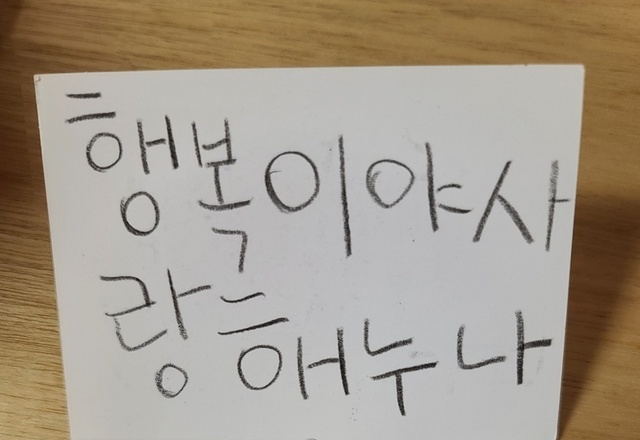 행복이야사
랑해누나